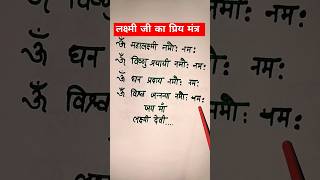 लक्ष्मी जी का प्रिय मंत्र
ॐ महालक्ष्मी नमोः नमः
ॐ विष्णु प्रयायी नमोः नमः
ॐ धन प्रदाय नमोः नमः
ॐ विश्व जनन्या नमोः नमः
जय माँ
लक्ष्मी देवी...